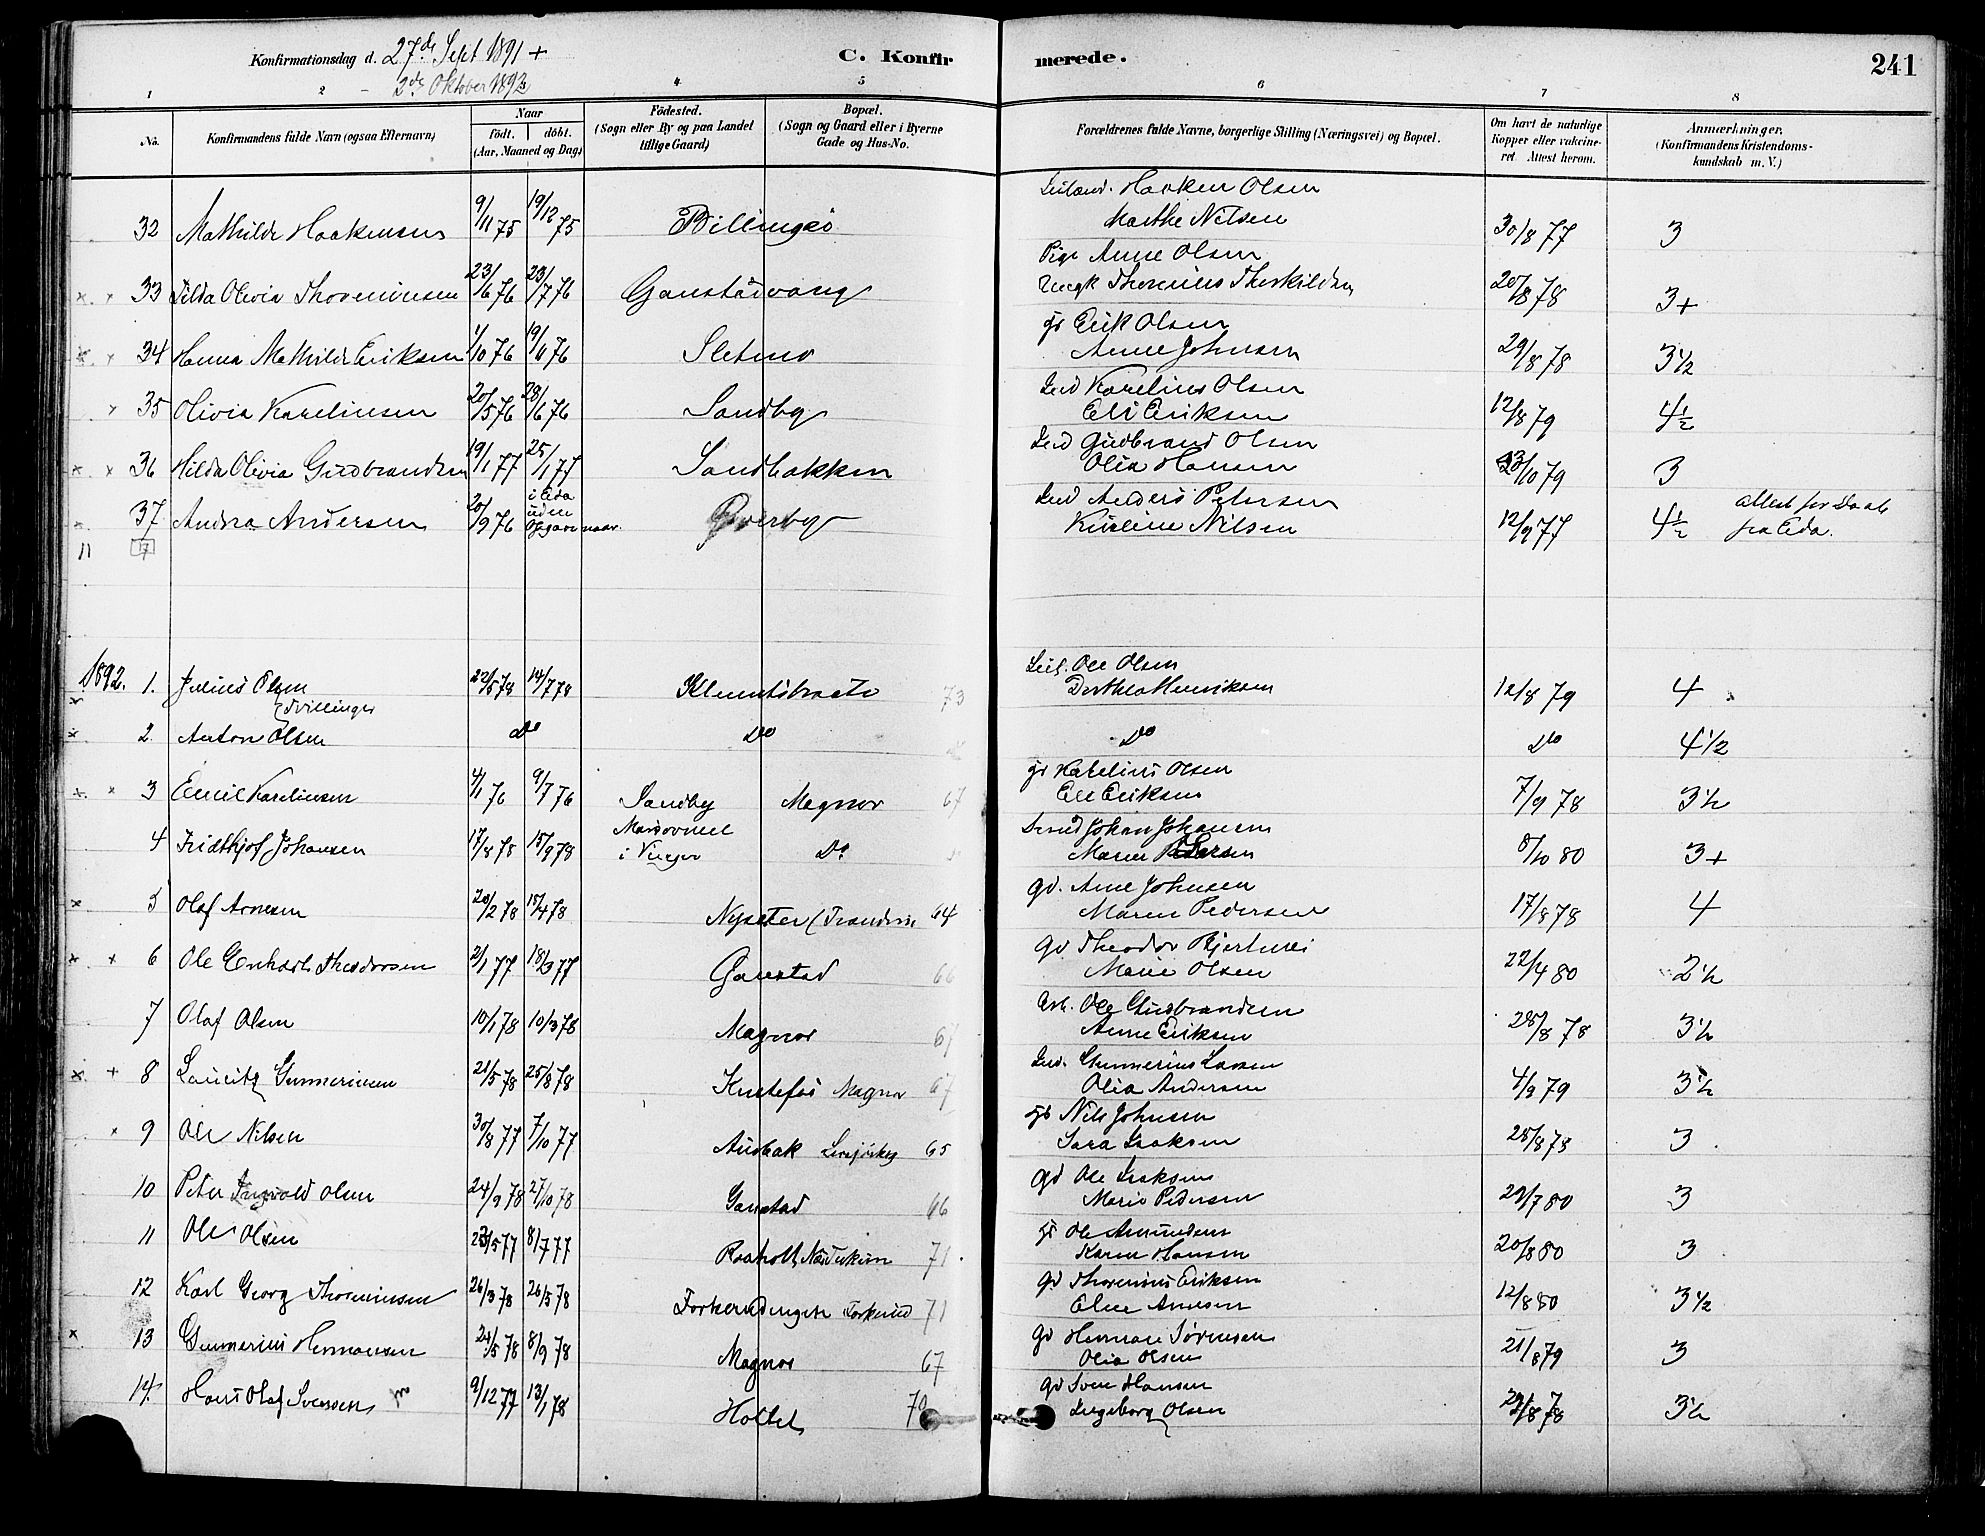 Konfirmationsdag d. 27de Sept 1891 +
2de Oktober 1892
C. Konfirmerede.
241
1 2 4 5 6 7 8
No.
Konfirmandens fulde Navn (ogsaa Efternavn)
Naar
födt. döbt.
(Aar, Maaned og Dag)
Födested.
(Sogn eller By og paa Landet
tillige Gaard)
Bopæl.
(Sogn og Gaard eller i Byerne
Gade og Hus-No.
Forældrenes fulde Navne, borgerlige Stilling (Næringsvei) og Bopæl.
Om havt de naturlige
Kopper eller vakcine-
ret Attest herom.
Anmærkninger.
(Konfirmandens Kristendoms-
kundskab m. V.)
32 Mathilde Haakensen 9/11 75 19/12 75 Billingsö Haaken Olsen
Marthe Nilsen 30/8 77 3
Pige Anne Olsen
33 Tilda Olivia Thoreniusen 23/6 76 23/7 76 Ganstadvang Ungk Thorenius Therkildsen 20/8 78 3+
34 Hanna Mathilde Eriksen 1/10 76 19/6 76 Sletmo gb Erik Olsen
Anne Johnsen 29/8 78 3 1/2
35 Olivia Karelinsen 20/5 76 28/6 76 Sandby Ind Karelius Olsen
Eli Eriksen 12/8 79 4 1/2
36 Hilda Olivia Gudbrandsen 19/1 77 25/1 77 Sandbakken Ind Gudbrand Olsen
Olia Hansen 23/10 79 3
37 Andrea Andersen 20/9 76 i Eda uden Opgave naar. Overby Ind Anders Petersen
Kirstine Nilsen 12/9 77 4 1/2 Attest for Daab
fra Eda.
11 17
1892.
1. Julius Olsen 22/5 78 14/7 78 Klemetsbraate 73 Ole Olsen
Dorthea Henriksen 12/8 79 4
Tvillinger
2 Anton Olsen Do Do Do Do 4 1/2
3 Emil Karelinsen 4/1 76 9/7 76 Sandby Magnor 67 gb Karelius Olsen
Eli Eriksen 7/9 78 3 1/2
4 Fridthjof Johansen 17/8 78 15/9 78 i Vinger Do Johan Johansen
Maren 8/10 80 3+
5 Olaf Arnesen 20/2 78 15/4 78 Nysæter 64 gd. Arne Johnsen
Maren Pedersen 17/8 78 4
6 Ole Enhart Theodorsen 2/1 77 18/3 77 Ganstad 66 gd Theodor Bjertnes
Marie Olsen 22/4 80 2 1/2
7 Olaf Olsen 10/1 78 10/3 78 Magnor 67 Arb. Ole Gudbrandsen
Anne Eriksen 28/8 78 3 1/2
8 Lauritz Gunneriusen 21/5 78 25/8 78 Kustefos Magnor 67 Ind. Gunnerius Larsen
Olia Andersen 4/9 79 3 1/2
9 Ole Nilsen 30/8 77 7/10 77 Audbak 65 gb Nils Johnsen
Sara Isaksen 28/8 78 3
10 Peter Ingvold Olsen 24/9 78 27/10 78 Ganstad 66 gd Ole Isaksen
Marie Pedersen 29/7 80 3
11 Ole Olsen 23/5 77 8/7 77 Raaholt 71 gb Ole Amundsen
Karen Hansen 20/8 80 3
12 Karl Georg Thoreniusen 26/3 78 26/5 78 Forkerudengen Forkerud 71 gd Thorenius Eriksen
Eline Arnesen 12/8 80 3 1/2
13 Gunnerius Hermansen 24/5 78 8/9 78 Magnor 67 gd Herman Sörensen
Olia Olsen 21/8 79 3
14. Hans Olaf Svensen 9/12 77 13/1 78 Holtet 70 gd Sven Hansen
Ingeborg Olsen 29/8 78 3 1/2